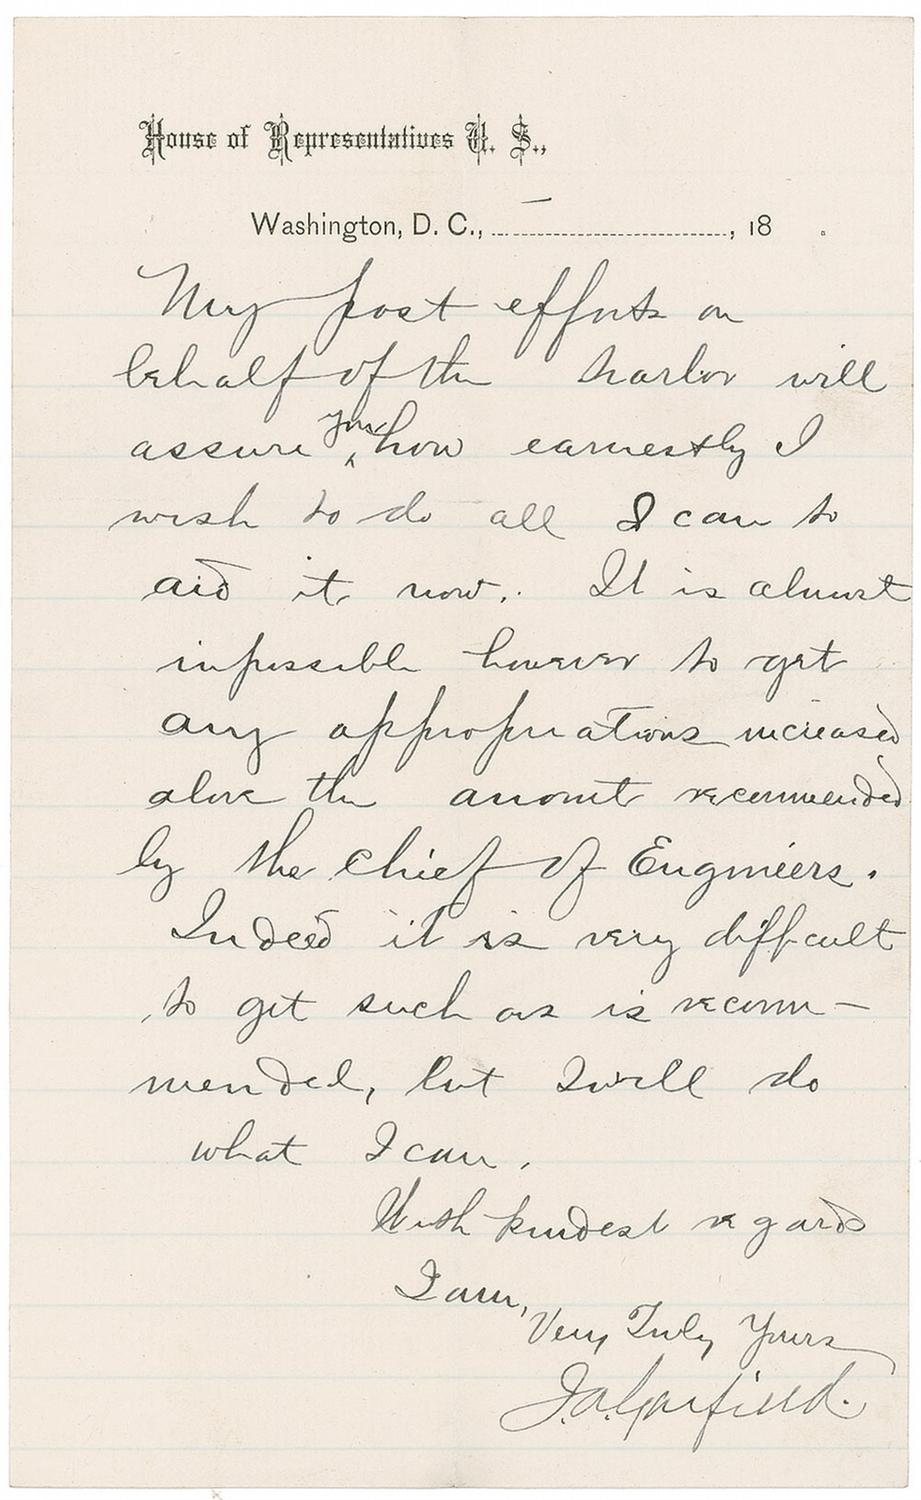 House of Representatives U. S.,
Washington, D. C., ............................, 18 .
My past efforts on
behalf of the harbor will
assure you how earnestly I
wish to do all I can to
aid it now. It is almost
impossible however to get
any appropriations increased
above the amount recommended
by the Chief of Engineers.
Indeed it is very difficult
to get such as is recom-
mended, but I will do
what I can.
With kindest regards
I am,
Very Truly Yours
J.A. Garfield.